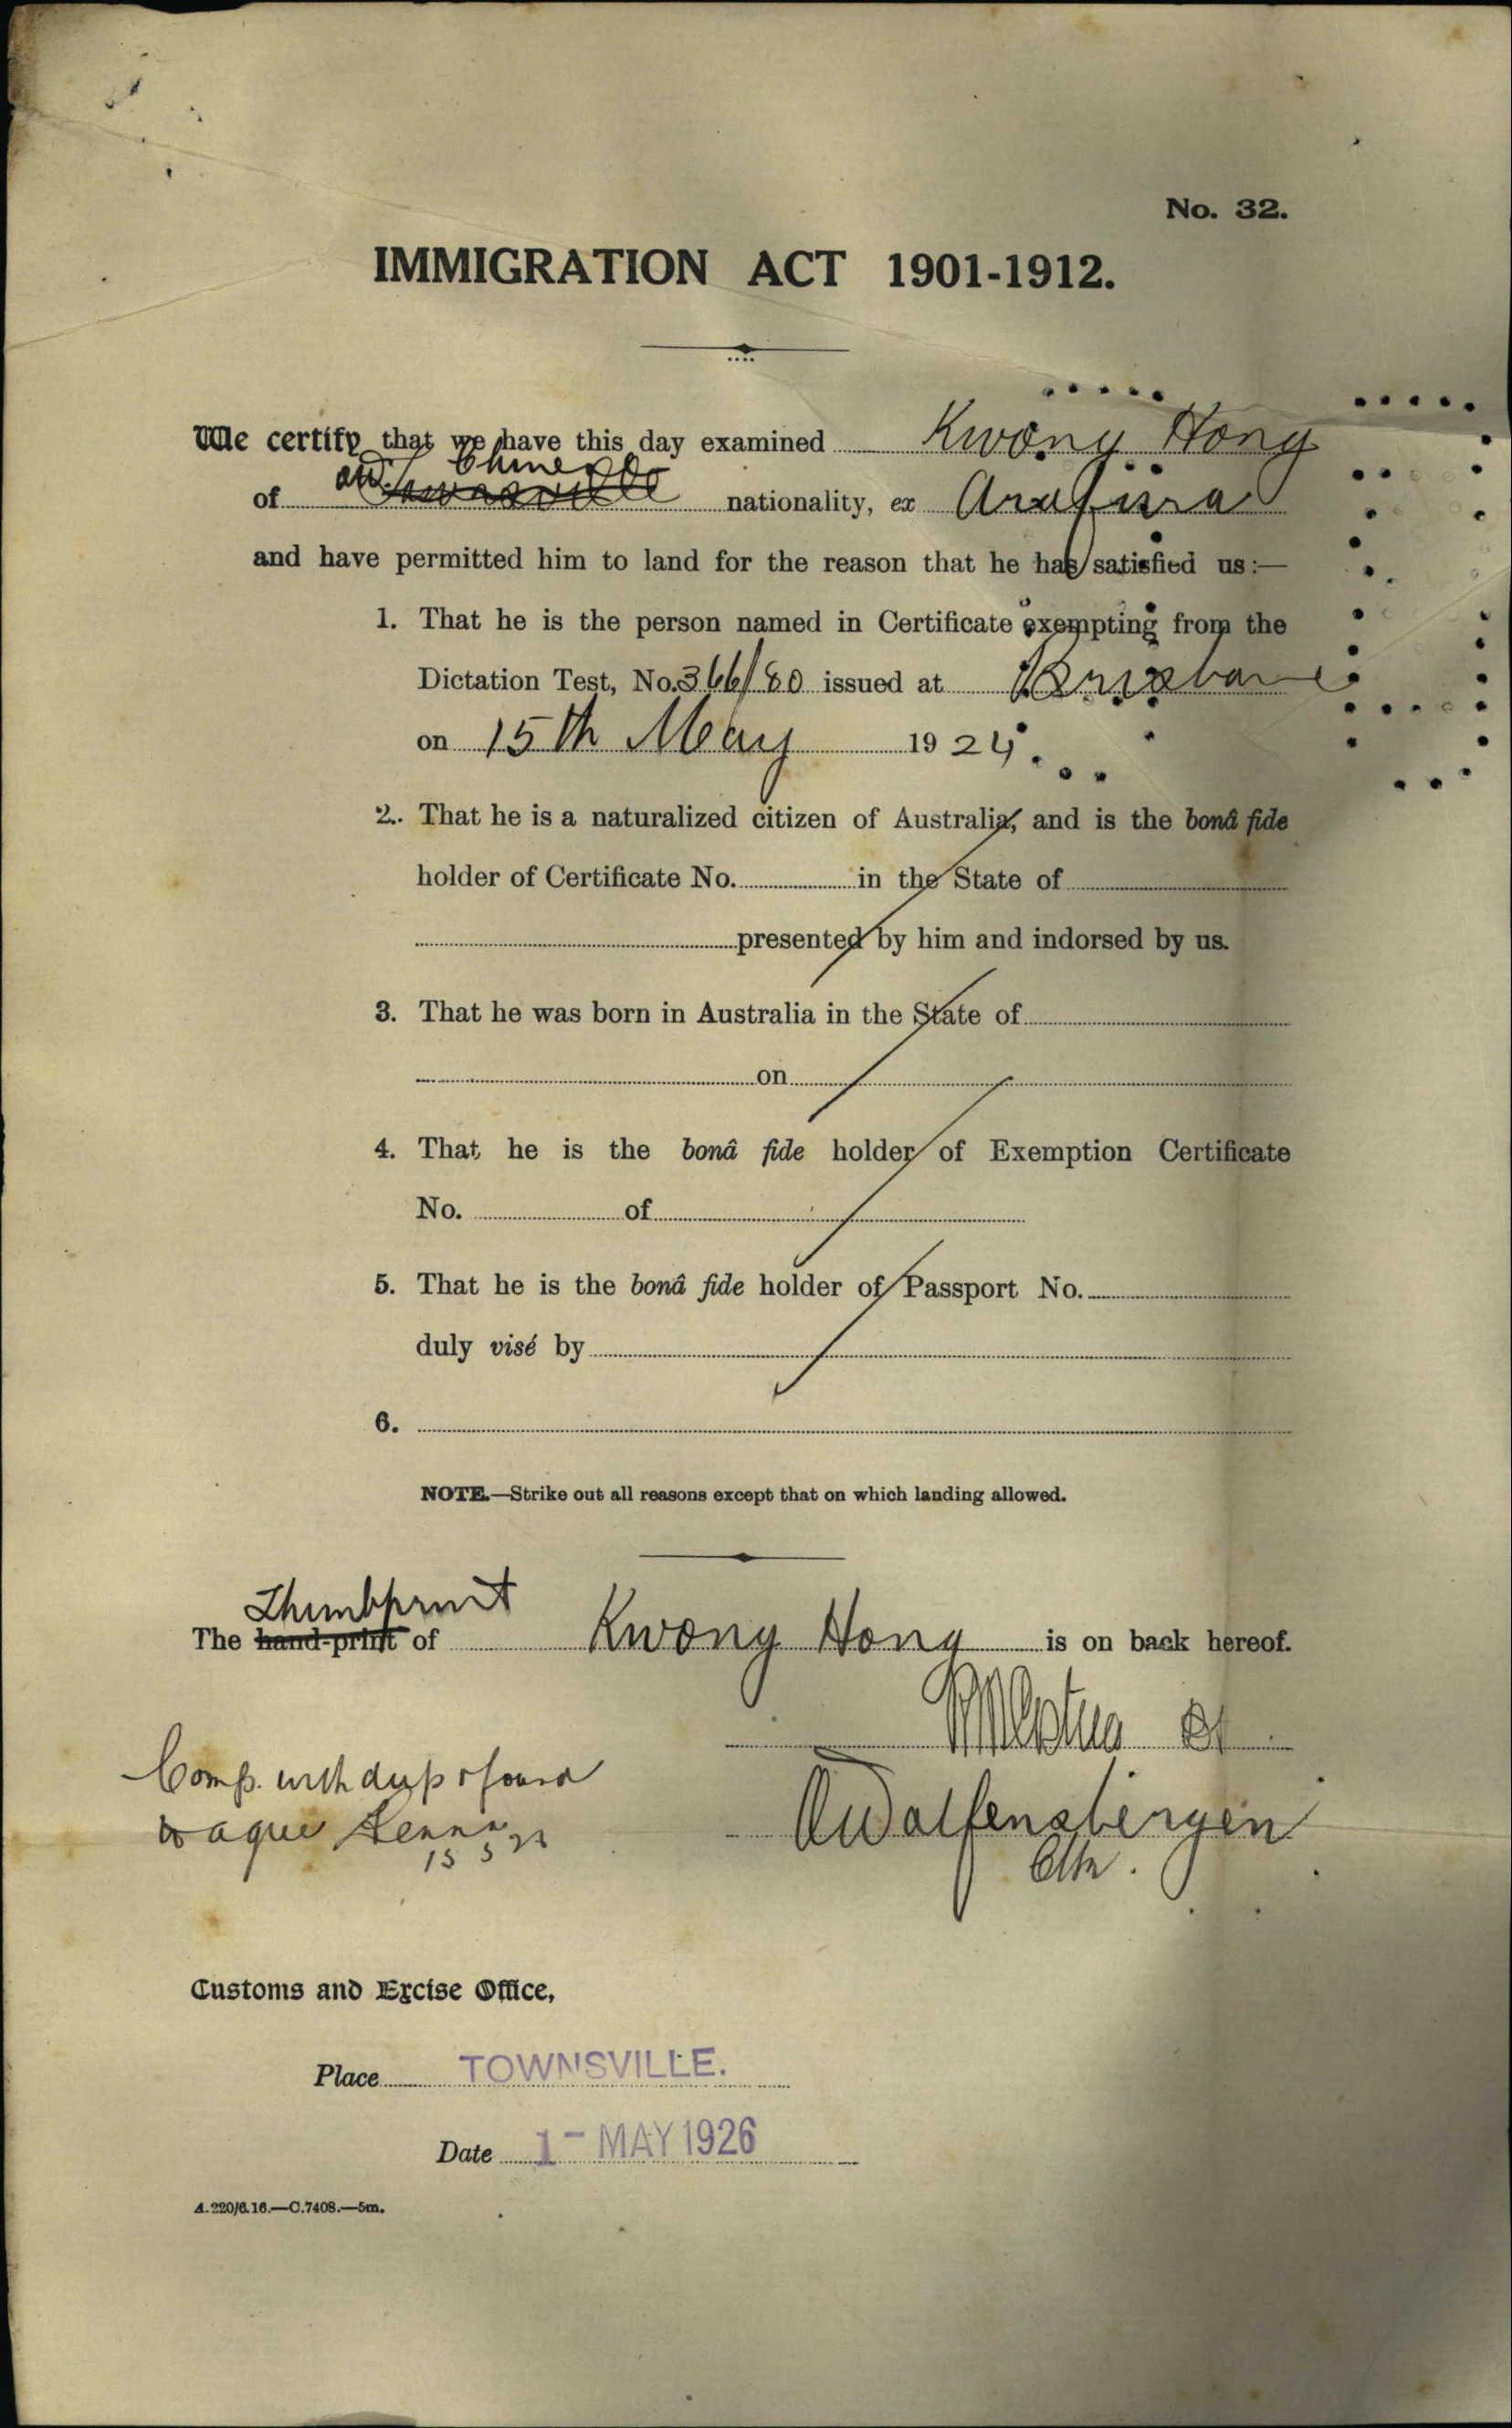 No. 32.
IMMIGRATION ACT 1901-1912.
We certify that we have this day examined Kwong Hong
Chinese
of Townsville nationality, ex Arafura
and have permitted him to land for the reason that he has satisfied us:—
1. That he is the person named in Certificate exempting from the
Dictation Test, No. 366/80 issued at Brisbane
on 15th May 1924.
2. That he is a naturalized citizen of Australia, and is the bonâ fide
holder of Certificate No. in the State of
presented by him and indorsed by us.
3. That he was born in Australia in the State of
on
4. That he is the bonâ fide holder of Exemption Certificate
No. of
5. That he is the bonâ fide holder of Passport No.
duly visé by
6.
NOTE.—Strike out all reasons except that on which landing allowed.
Thumbprint
The hand-print of Kwong Hong is on back hereof.
Comp. with dup & found
to agree
Clk.
Customs and Excise Office,
Place TOWNSVILLE.
Date 1- MAY 1926
A.220/6.16.—C.7408.—5m.